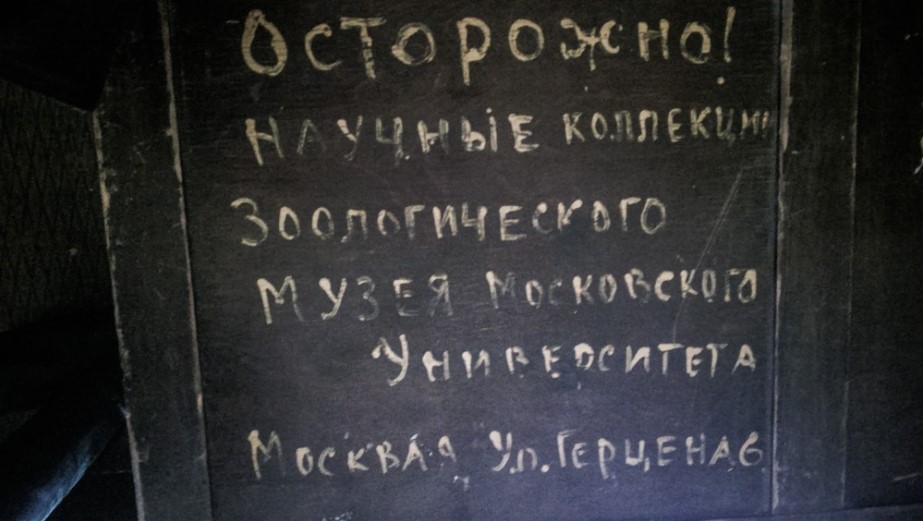 Осторожно!
Научные коллекции
Зоологического
Музея Московского
Университета
Москва Ул. Герцена 6